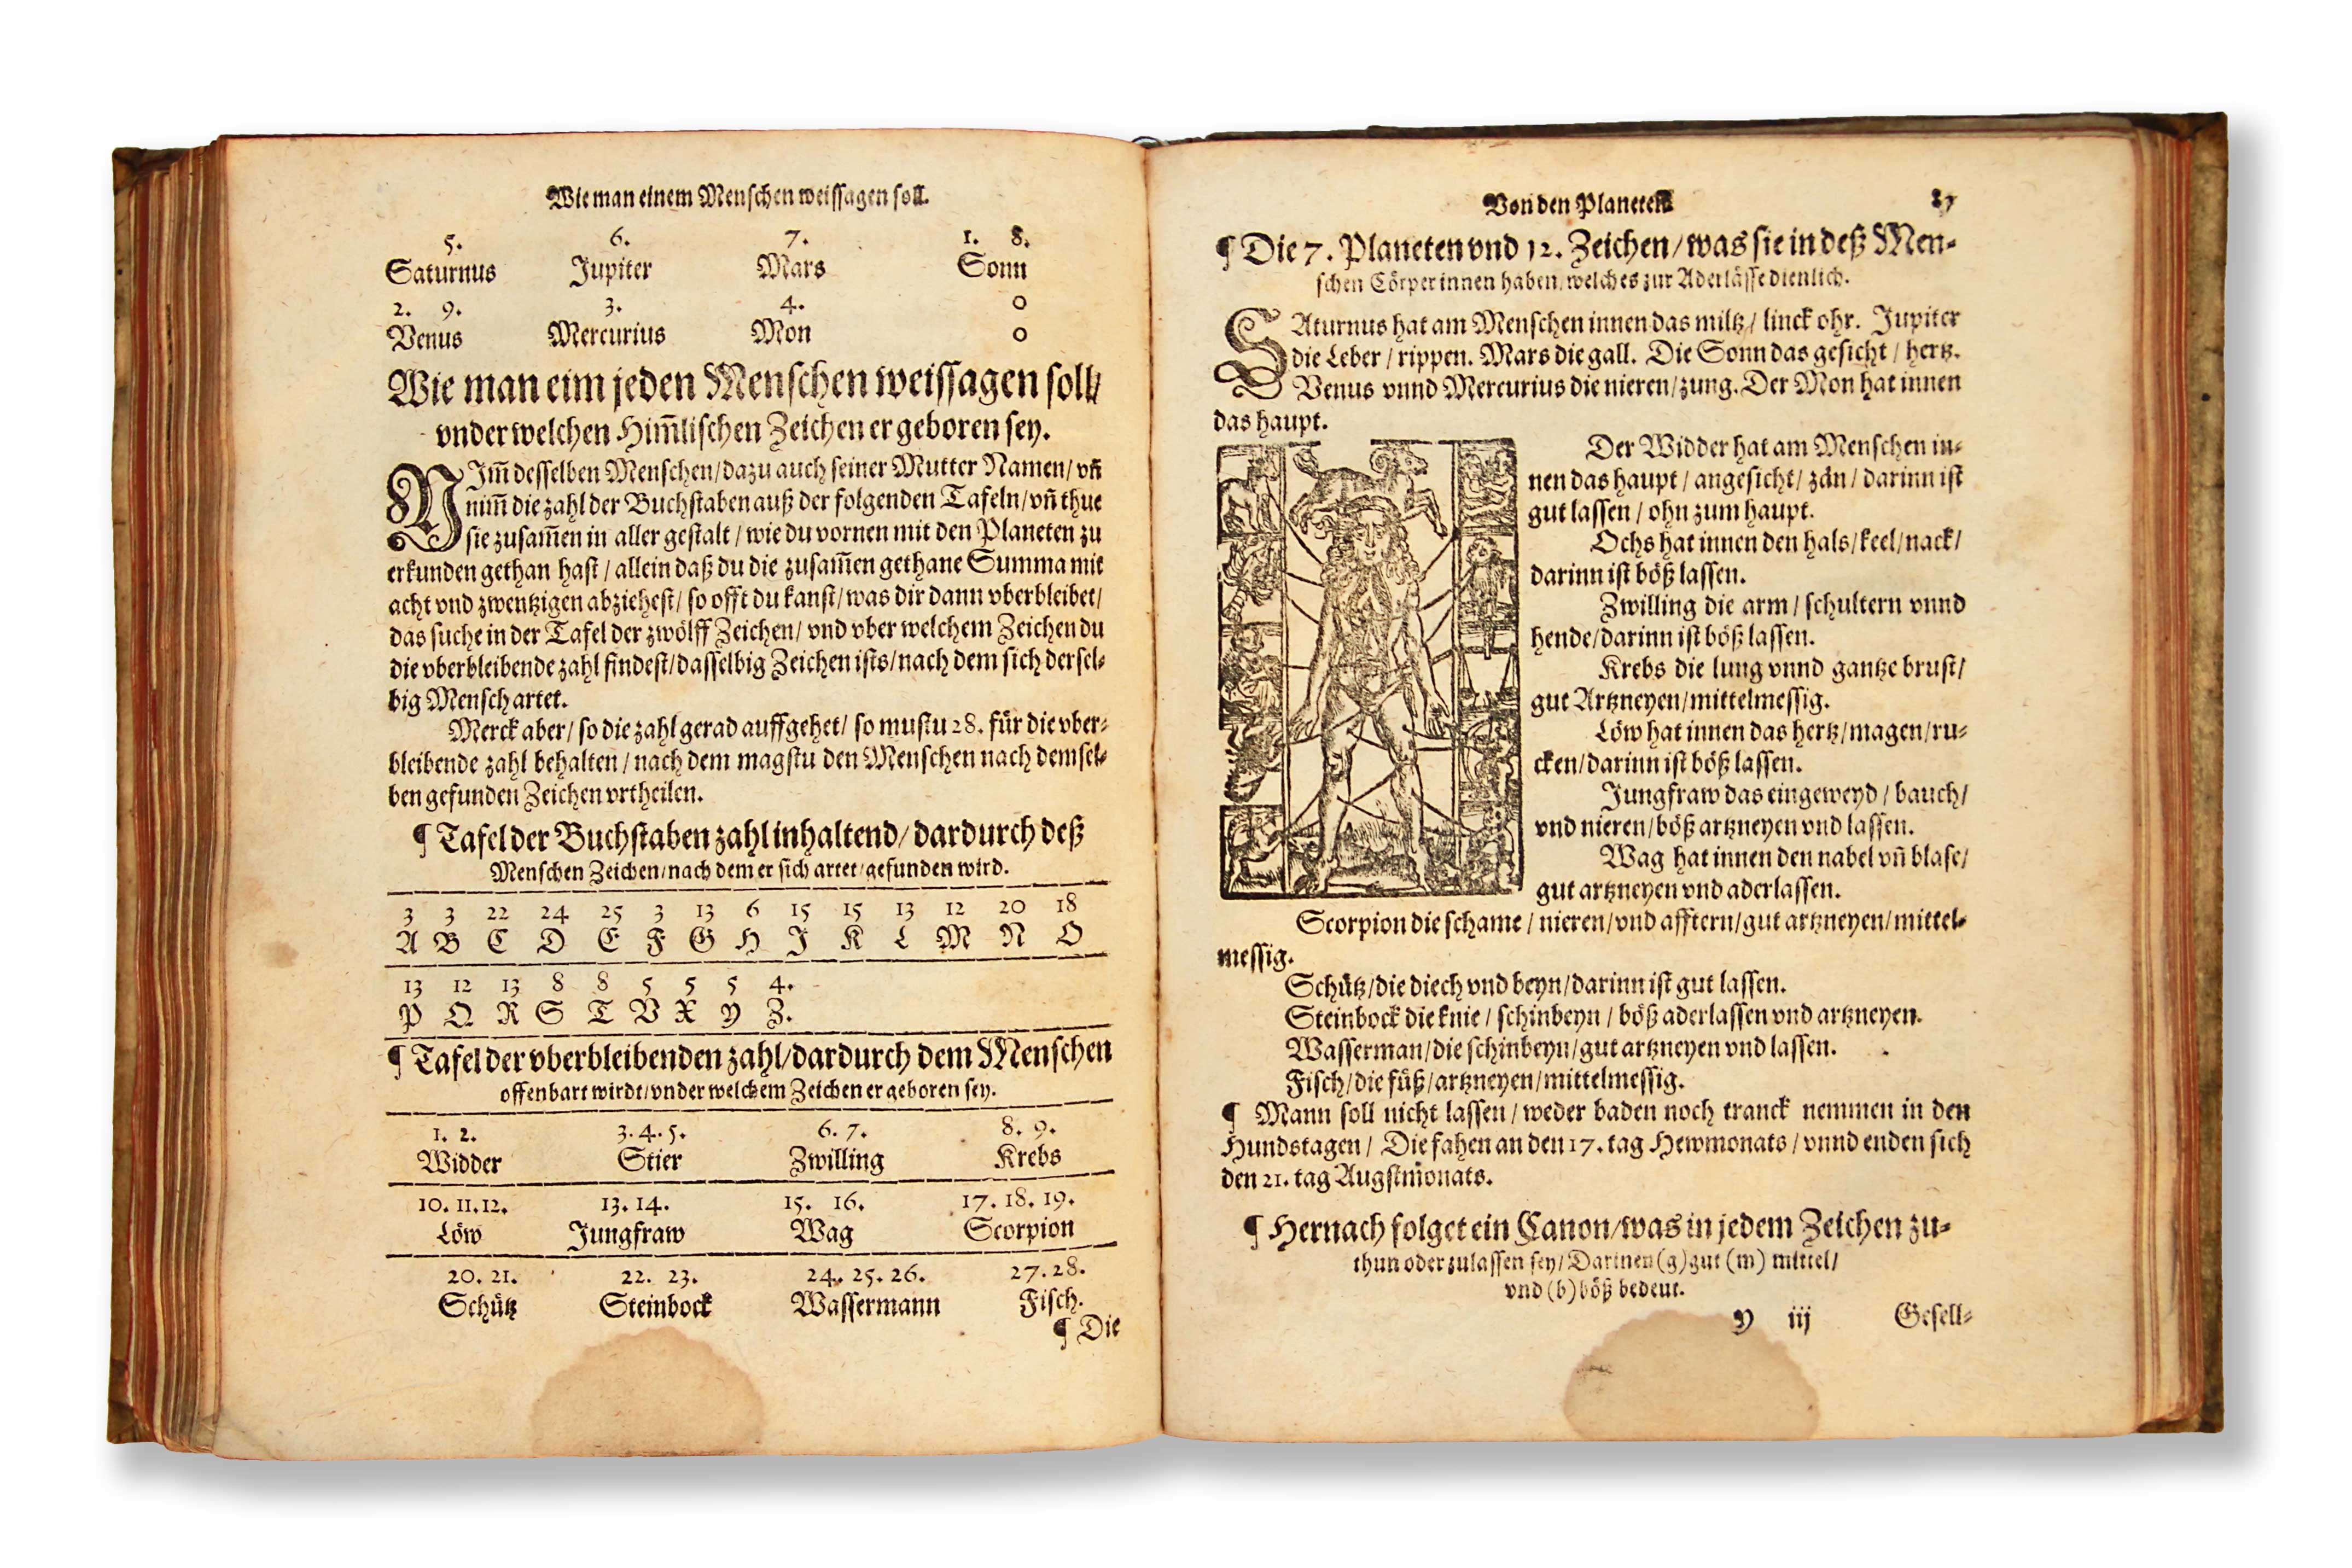 Wie man einem Menschen weissagen soll.
5. 6. 7. 1. 8.
Saturnus Jupiter Mars Sonn
2. 9. 3. 4. 0
Venus Mercurius Mon 0
Wie man eim jeden Menschen weissagen soll/
vnder welchen Him̄lischen Zeichen er geboren sey.
NIm̄ desselben Menschen/dazu auch seiner Mutter Namen/ vñ
nim̄ die zahl der Buchstaben auß der folgenden Tafeln/ vñ thue
sie zusam̄en in aller gestalt / wie du vornen mit den Planeten zu
erkunden gethan hast / allein daß du die zusam̄en gethane Summa mit
acht vnd zwentzigen abziehest/ so offt du kanst/was dir dann vberbleibet/
das suche in der Tafel der zwölff Zeichen/ vnd vber welchem Zeichen du
die vberbleibende zahl findest/dasselbig Zeichen ists/nach dem sich dersel-
big Mensch artet.
Merck aber/ so die zahl gerad auffgehet/ so mustu 28. für die vber-
bleibende zahl behalten / nach dem magstu den Menschen nach demsel-
ben gefunden Zeichen vrtheilen.
¶ Tafel der Buchstaben zahl inhaltend/ dardurch deß
Menschen Zeichen/nach dem er sich artet/gefunden wird.
3 3 22 24 25 3 13 6 15 15 13 12 20 18
A B C D E F G H J K L M N O
13 12 13 8 8 5 5 5 4.
P Q R S T V X Y Z.
¶ Tafel der vberbleibenden zahl/dardurch dem Menschen
offenbart wirdt/vnder welchem Zeichen er geboren sey.
1. 2. 3. 4. 5. 6. 7. 8. 9.
Widder Stier Zwilling Krebs
10. 11. 12. 13. 14. 15. 16. 17. 18. 19.
Löw Jungfraw Wag Scorpion
20. 21. 22. 23. 24. 25. 26. 27. 28.
Schütz Steinbock Wassermann Fisch.
¶ Die
Von den Planeten
¶ Die 7. Planeten vnd 12. Zeichen/ was sie in deß Men-
schen Cörper innen haben/welches zur Aderlässe dienlich.
SAturnus hat am Menschen innen das miltz / linck ohr. Jupiter
die Leber / rippen. Mars die gall. Die Sonn das gesicht / hertz.
Venus vnnd Mercurius die nieren/zung. Der Mon hat innen
das haupt.
Der Widder hat am Menschen in-
nen das haupt / angesicht/ zän / darinn ist
gut lassen / ohn zum haupt.
Ochs hat innen den hals/keel/nack/
darinn ist böß lassen.
Zwilling die arm / schultern vnnd
hende/darinn ist böß lassen.
Krebs die lung vnnd gantze brust/
gut Artzneyen/mittelmessig.
Löw hat innen das hertz/magen/ru-
cken/darinn ist böß lassen.
Jungfraw das eingeweyd / bauch/
vnd nieren/böß artzneyen vnd lassen.
Wag hat innen den nabel vñ blase/
gut artzneyen vnd aderlassen.
Scorpion die schame / nieren/vnd afftern/gut artzneyen/mittel-
messig.
Schütz/die diech vnd beyn/darinn ist gut lassen.
Steinbock die knie / schinbeyn / böß aderlassen vnd artzneyen.
Wasserman/die schinbeyn/gut artzneyen vnd lassen.
Fisch/die füß/artzneyen/mittelmessig.
¶ Mann soll nicht lassen / weder baden noch tranck nemmen in den
Hundstagen / Die fahen an den 17. tag Hewmonats / vnnd enden sich
den 21. tag Augstmonats.
¶ Hernach folget ein Canon/was in jedem Zeichen zu-
thun oder zulassen sey/ Darinen (g) gut (m) mittel/
vnd (b) böß bedeut.
y iij Gesell-